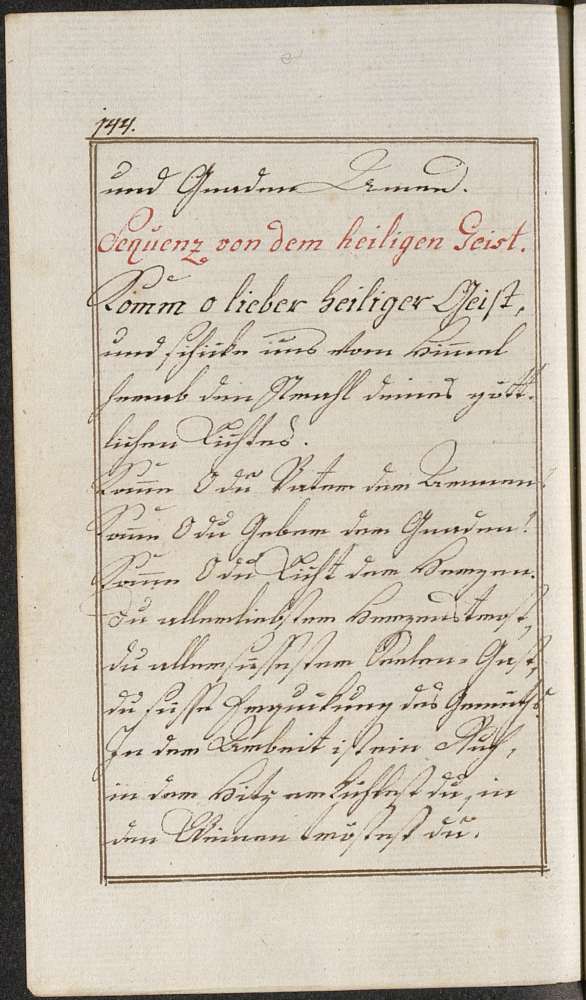 144.
und Gnaden Amen.
Sequenz von dem heiligen Geist.
Komm o lieber heiliger Geist,
und schicke uns vom Himmel
herab den Strahl deines gött-
lichen Lichtes.
Komm O du Vater der Armen!
Komm O du Geber der Gnaden!
Komm O du Licht der Herzen.
Du allerliebster Herzenstrost,
du allersüssester Seelen-Gast,
du süsse Erquickung des Gemüths.
In der Arbeit ist ein Ruh,
in der Hitz erkühlest du, in
den Weinen tröstest du.